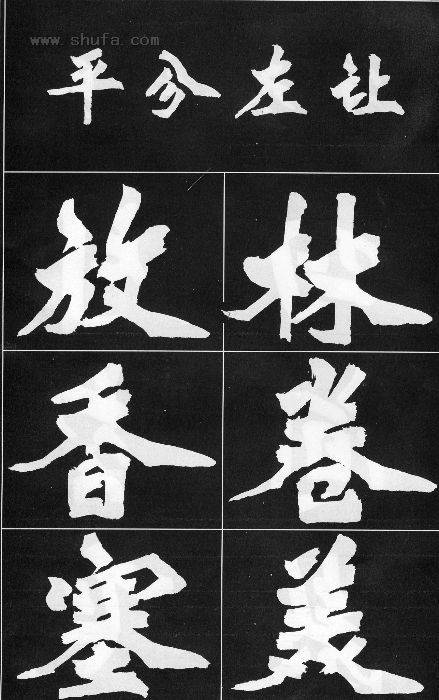 www.shufa.com
平分左让
放林
香卷
塞美